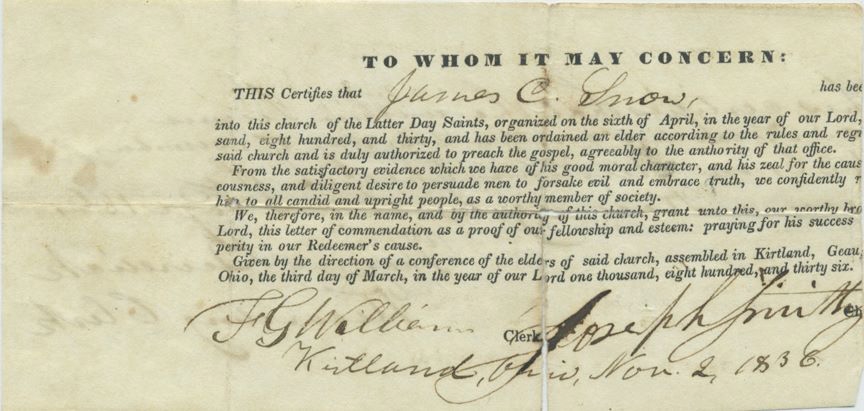 TO WHOM IT MAY CONCERN:
THIS Certifies that James C. Snow, has bee
into this church of the Latter Day Saints, organized on the sixth of April, in the year of our Lord,
sand, eight hundred, and thirty, and has been ordained an elder according to the rules and reg
said church and is duly authorized to preach the gospel, agreeably to the anthority of that office.
From the satisfactory evidence which we have of his good moral character, and his zeal for the caus
eousness, and diligent desire to persuade men to forsake evil and embrace truth, we confidently r
him to all candid and upright people, as a worthy member of society.
We, therefore, in the name, and by the authority of this church, grant unto this, our worthy bro
Lord, this letter of commendation as a proof of our fellowship and esteem: praying for his success
perity in our Redeemer's cause.
Given by the direction of a conference of the elders of said church, assembled in Kirtland, Geau
Ohio, the third day of March, in the year of our Lord one thousand, eight hundred, and thirty six.
F G Williams Clerk. Joseph Smith Ch
Kirtland, Ohio, Nov. 2, 1836.